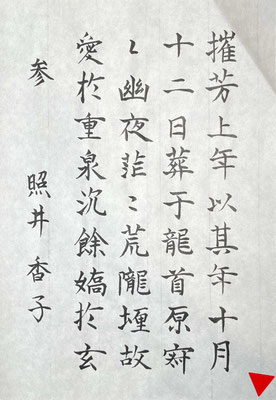 摧芳上年以其年十月
十二日葬于龍首原寂
〻幽夜〻荒隴堙故
愛於重泉沉餘嬌於玄
参 照井香子